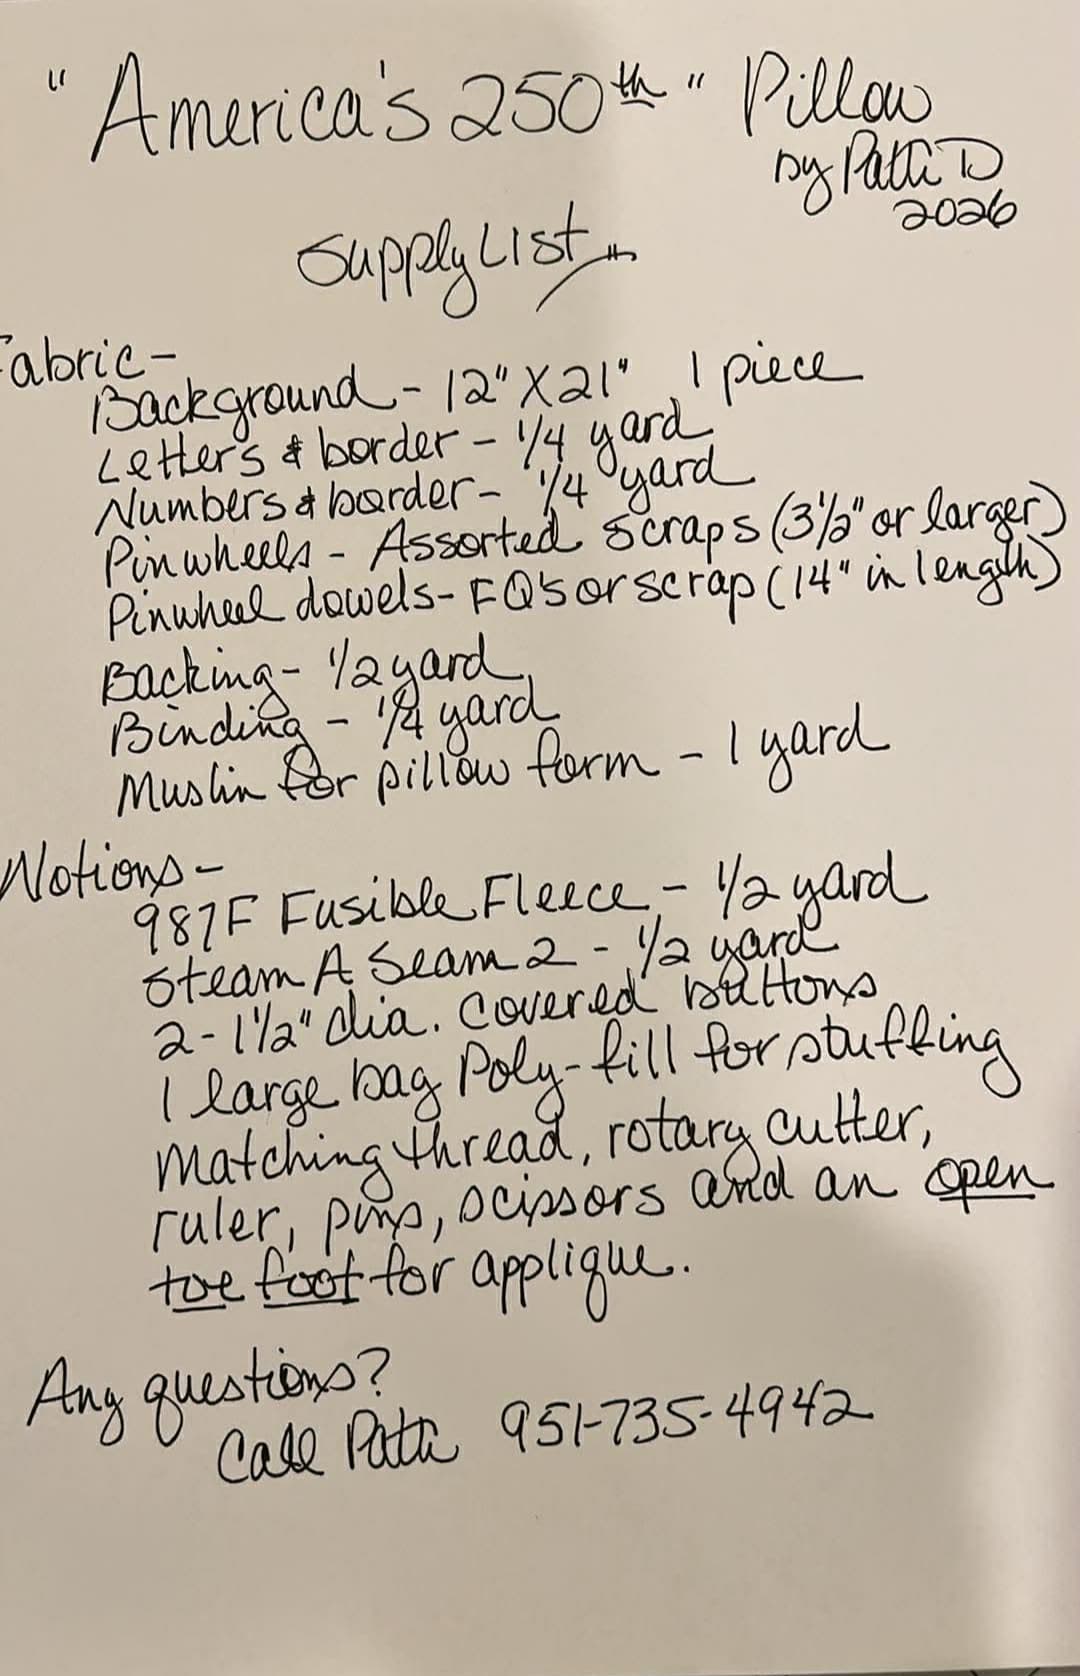 "America's 250th" Pillow
by Patti D
2026
Supply List
Fabric-
Background - 12" X 21" 1 piece
Letters & border - 1/4 yard
Numbers & border - 1/4 yard
Pinwheels - Assorted scraps (3 1/2" or larger)
Pinwheel dowels - FQ's or scrap (14" in length)
Backing - 1/2 yard
Binding - 1/4 yard
Muslin for pillow form - 1 yard
Notions -
987F Fusible Fleece - 1/2 yard
Steam A Seam 2 - 1/2 yard
2 - 1 1/2" dia. covered buttons
1 large bag Poly-fill for stuffing
Matching thread, rotary cutter,
ruler, pins, scissors and an open
toe foot for applique.
Any questions?
Call Patti 951-735-4942